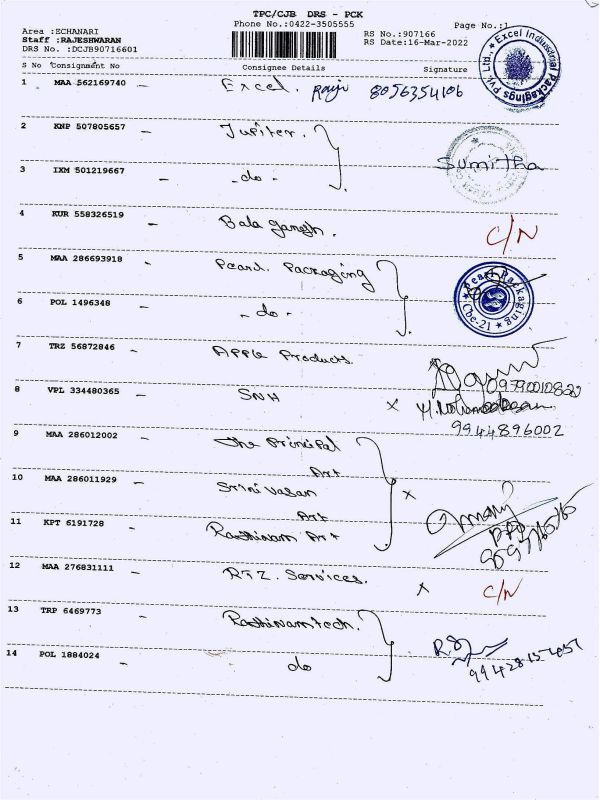 TPC/CJB DRS - PCK
Phone No.:0422-3505555
Page No.:1
Area :ECHANARI
Staff :RAJESHWARAN
DRS No. :DCJB90716601
RS No.:907166
RS Date:16-Mar-2022
S No Consignment No Consignee Details Signature
1 MAA 562169740 - Excel. Raji 8056354106
Excel Industrial Packagings Pvt. Ltd.,
2 KNP 507805657 - Jupiter.
Sumitha
3 IXM 501219667 - -do-
4 KUR 558326519 - Bala ganesh. C/N
5 MAA 286693918 - Pearl Packaging
Pearl Packaging
Cbe-21
6 POL 1496348 - -do-
7 TRZ 56872846 - Apple Products
8 VPL 334480365 - SNH x
9944896002
9 MAA 286012002 - the Principal
Art
10 MAA 286011929 - Srinivasan x
Art
11 KPT 6191728 - Rathinam Art
12 MAA 276831111 - RTZ. Services. x C/N
13 TRP 6469773 - Rathinamtech.
14 POL 1884024 - do